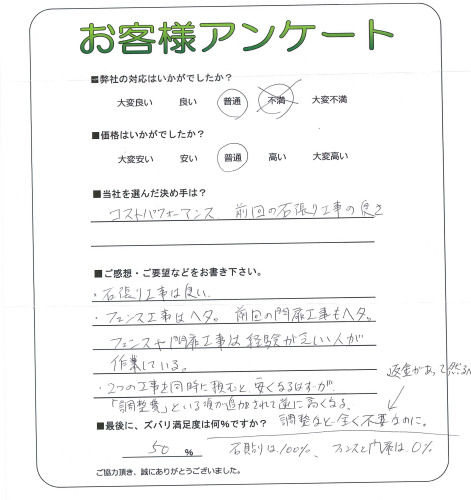 お客様アンケート
■弊社の対応はいかがでしたか？
大変良い 良い 普通 不満 大変不満
■価格はいかがでしたか？
大変安い 安い 普通 高い 大変高い
■当社を選んだ決め手は？
コストパフォーマンス 前回の石張り工事の良さ
■ご感想・ご要望などをお書き下さい。
・石張り工事は良い。
・フェンス工事はヘタ。 前回の門扉工事もヘタ。
フェンスや門扉工事は経験が乏しい人が
作業している。
・2つの工事を同時に頼むと、安くなるはずが、
「調整費」という項が追加されて逆に高くなる。
返金があって然る
調整など全く不要なのに。
■最後に、ズバリ満足度は何％ですか？
50 ％
石貼りは100%、フェンスと門扉は0%
ご協力頂き、誠にありがとうございました。